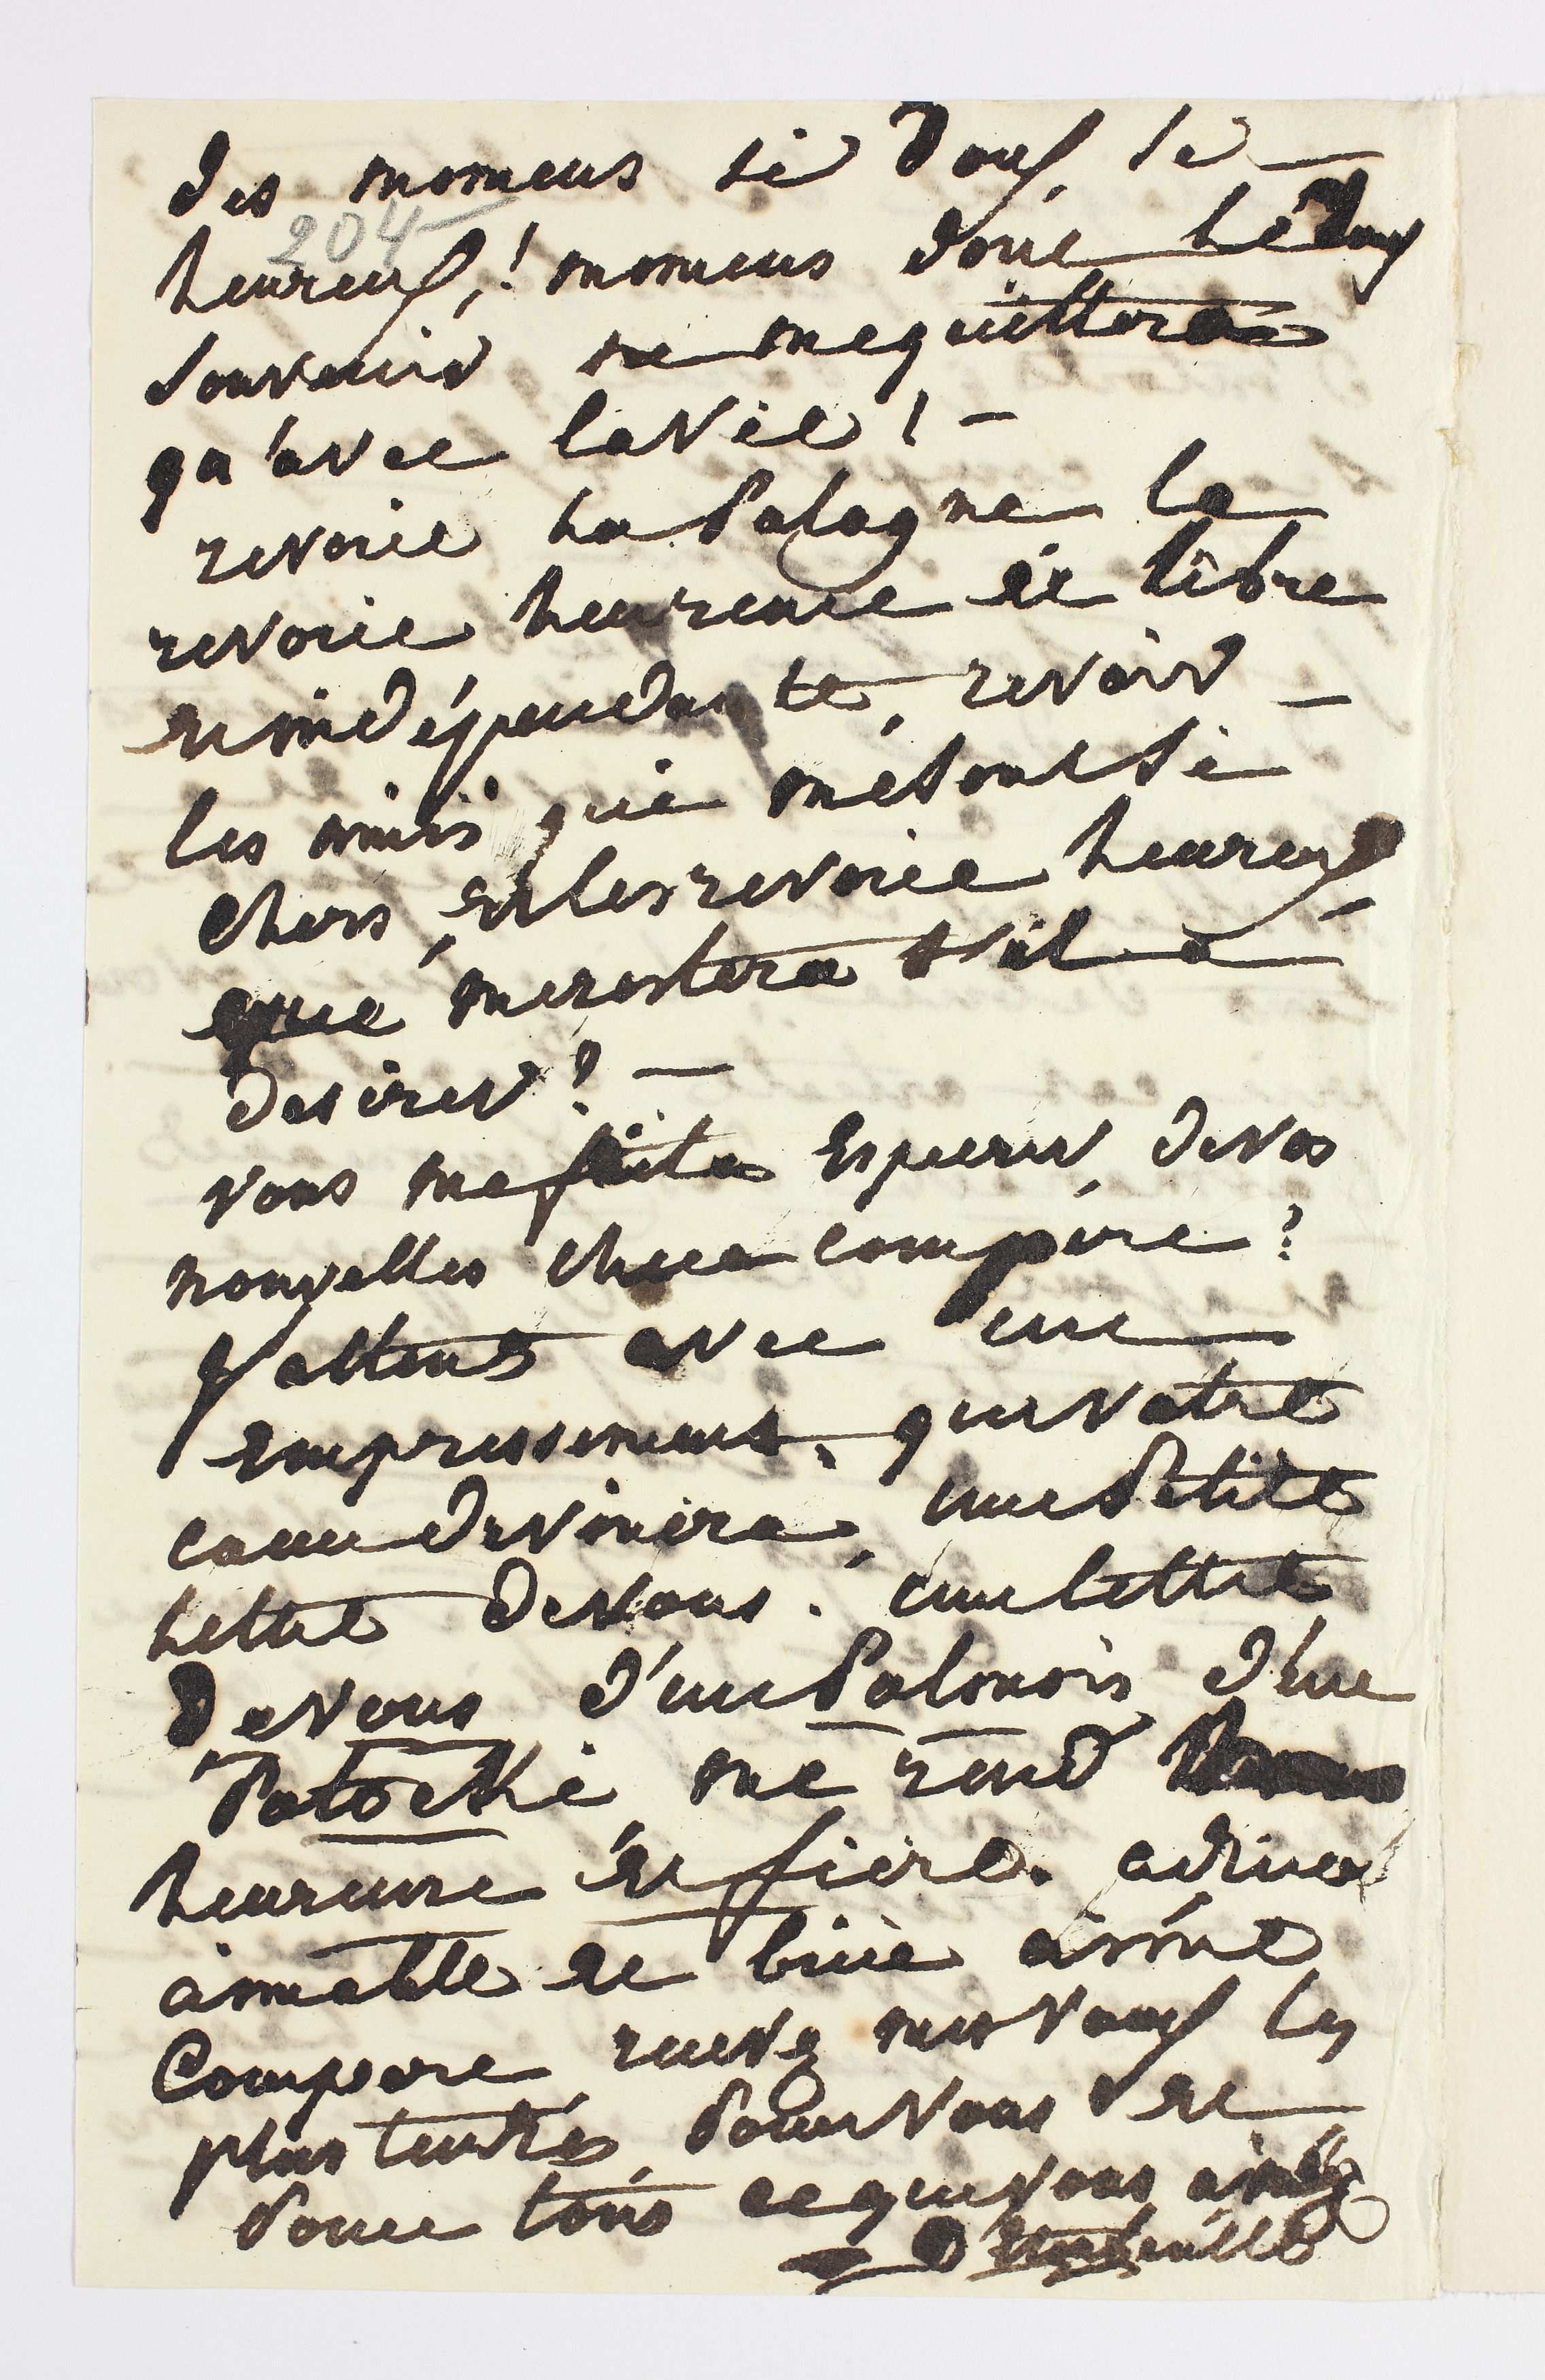 des momens si doux, si —
204
heureux,! momens dont le doux
souvenir ne me quittera
qu'avec la vie! —
revoir la Pologne, la
revoir heureuse et libre
et indépendante, revoir —
les amis qui me sont si
chers, et les revoir heureux —
que me restera t'il a
desirer? —
vous me faites esperer, de vos
nouvelles cher compère?
J'attens avec un
empressement, que votre
coeur devinera, une Petite
lettre de vous. une lettre
De vous d'un Polonois d'un
Potocki me rend
heureuse et fiere. adieu
aimable et bien aimé
Compere recevez mes vœux les
plus tendres, Pour vous et
Pour tous ce que vous aimez